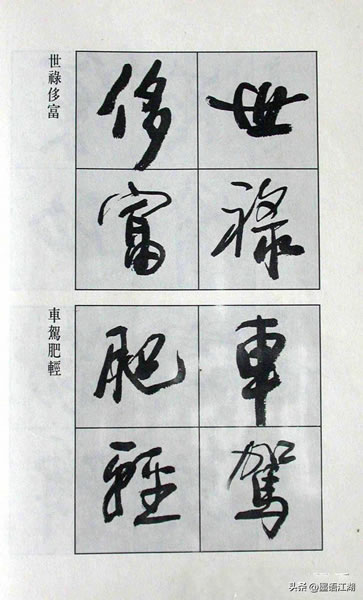 世祿
侈富
世祿侈富
車駕
肥輕
車駕肥輕
头条@國语江湖